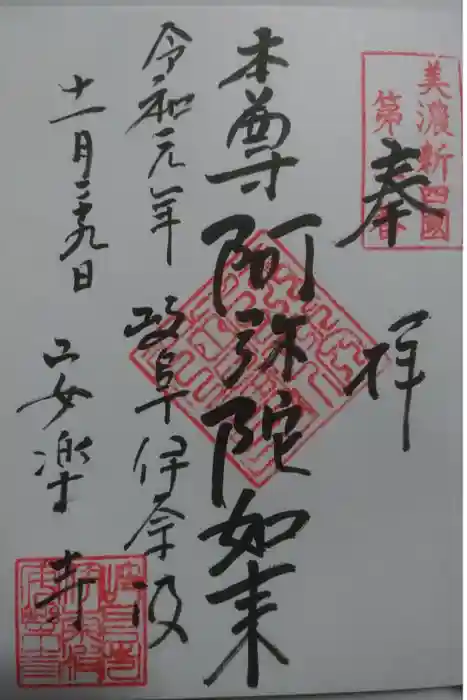 美濃新四國
第
奉拝
本尊阿弥陀如来
令和元年
十一月二十九日
岐阜伊奈波
安楽寺